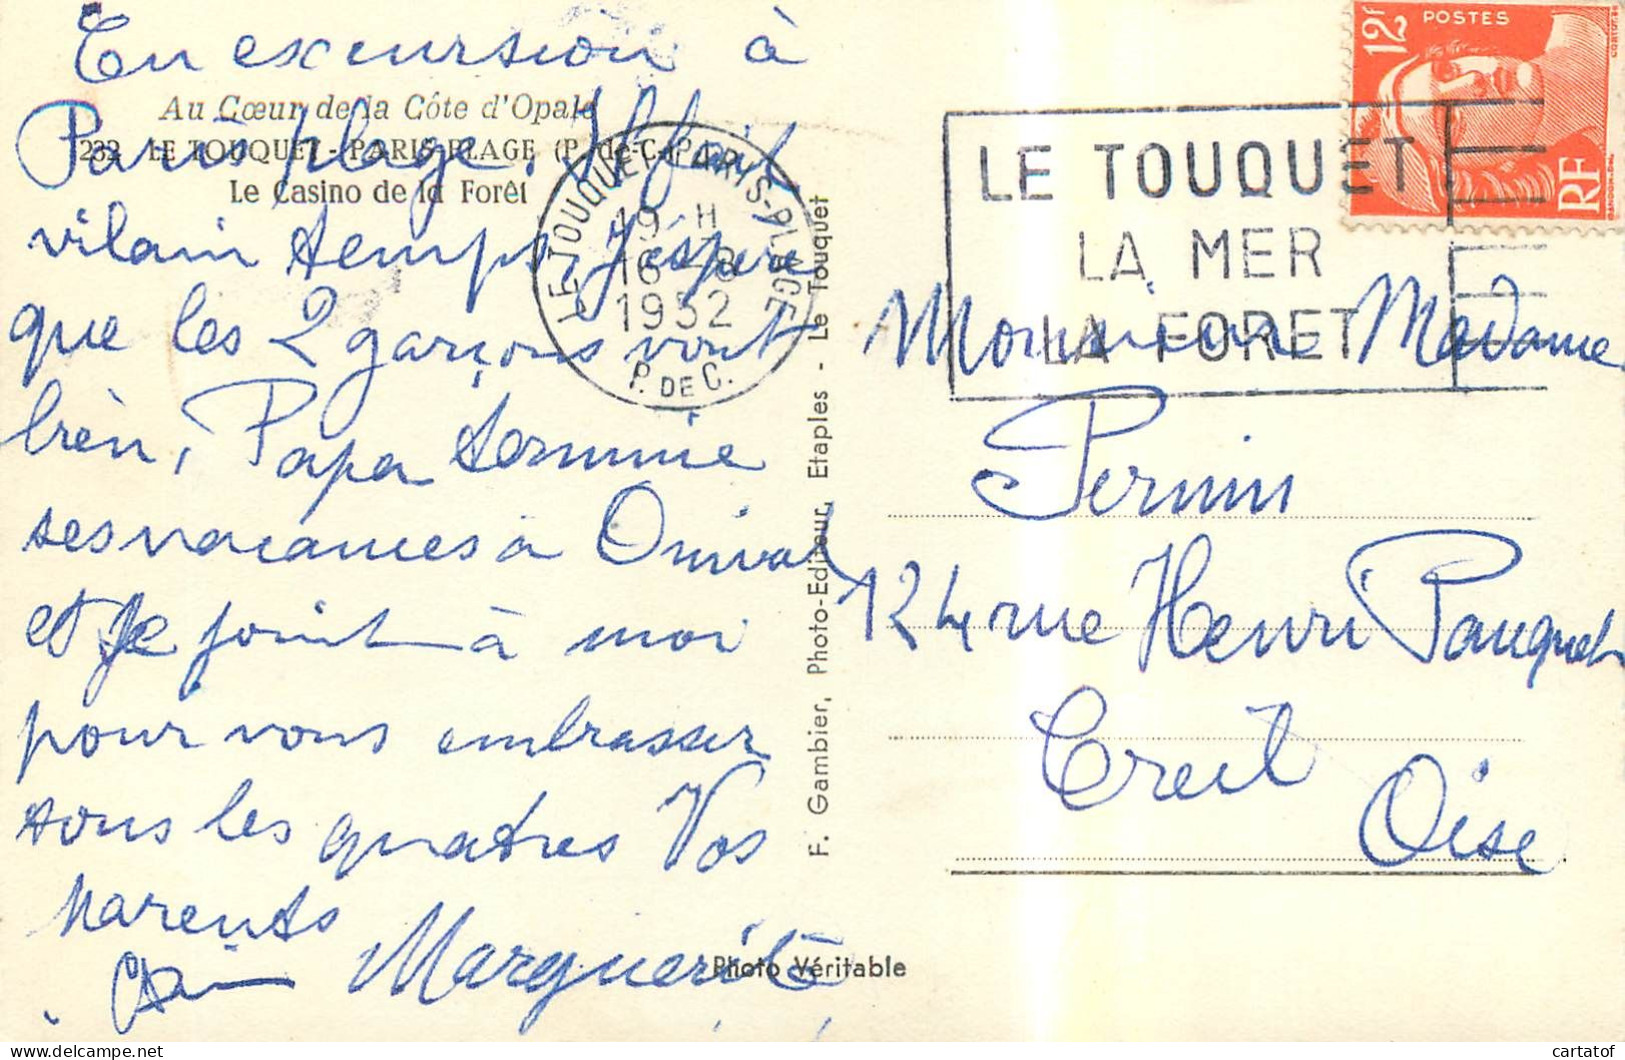 En excursion à
Paris plage, Il fait
vilain temps, j'éspère
que les 2 garçons vont
bien, Papa termine
ses vacances à Onival
et se joint à moi
pour vous embrasser
tous les quatres Vos
parents
Marguerite
Au Cœur de la Côte d'Opale
232 LE TOUQUET-PARIS-PLAGE (P.-de-C.)
Le Casino de la Forêt
LE TOUQUET-PARIS-PLAGE
19 H
16 -8
1952
P. DE C.
F. Gambier, Photo-Editeur, Etaples - Le Touquet
Photo Véritable
LE TOUQUET
LA MER
LA FORET
12f
POSTES
RF
Monsieur Madame
Pernin
124 rue Henri Pauquet
Creil
Oise
cartatof